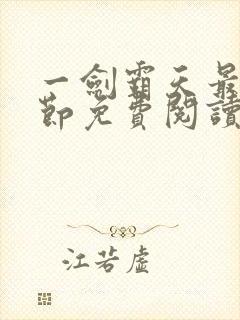 一劍霸天最
節免費閱讀
江若虛